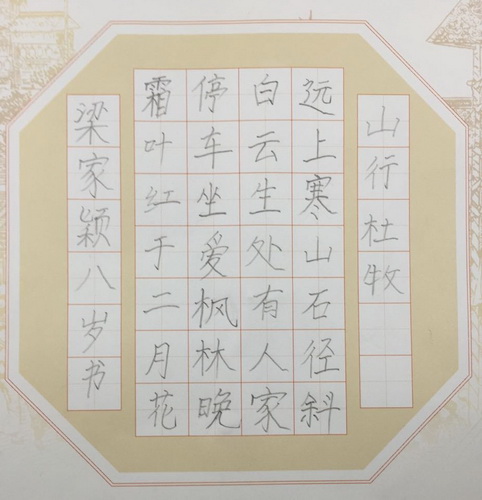 山行杜牧
远上寒山石径斜
白云生处有人家
停车坐爱枫林晚
霜叶红于二月花
梁家颖八岁书